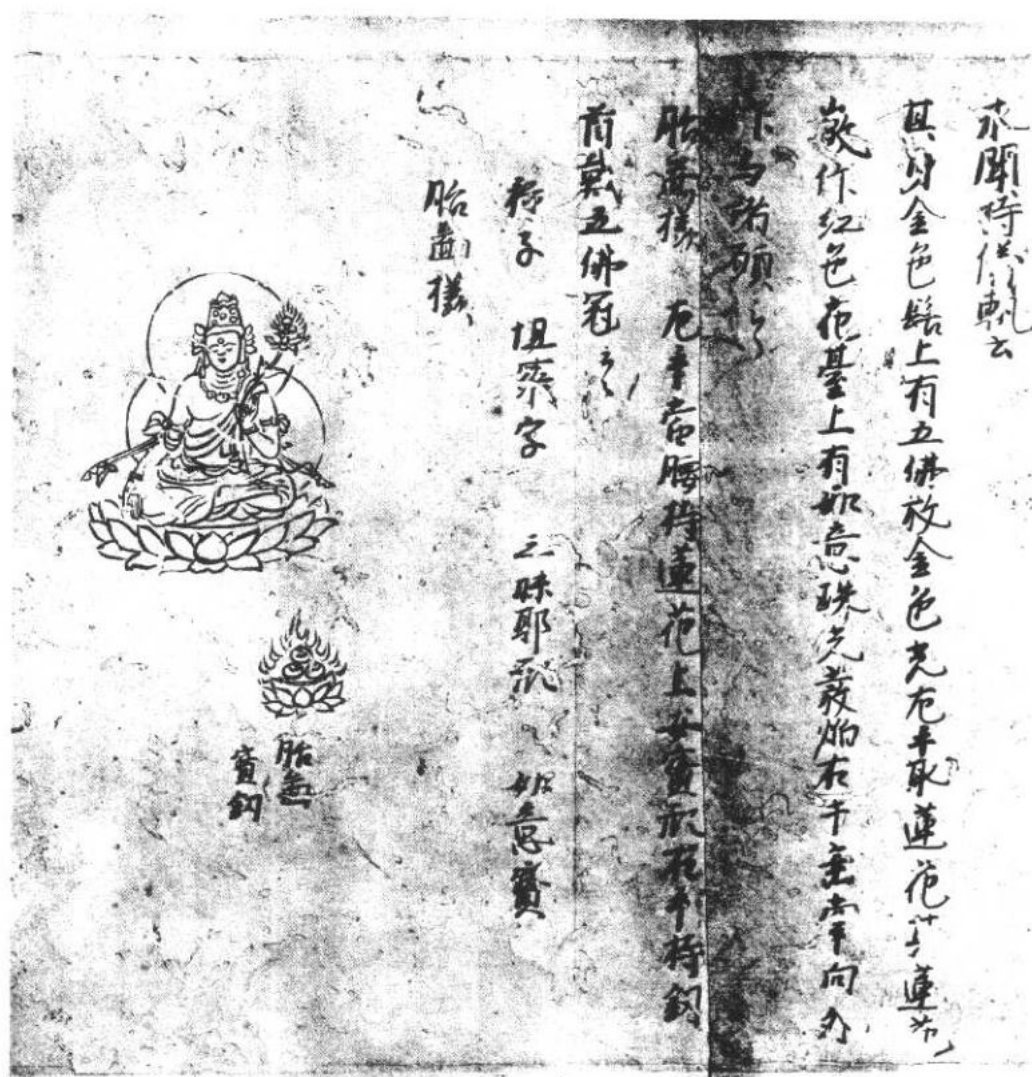 求聞持儀軌云
其身金色髻上有五佛放金色光左手取蓮花其蓮花
微作紅色花臺上有如意珠光發焔右手垂掌向外
作与諸願印
胎藏樣 左手當腰持蓮花上安寶形右手持釼
首戴五佛冠云々
種子 怛落字 三昧耶形 如意寶
胎圖樣
胎藏
寶釼